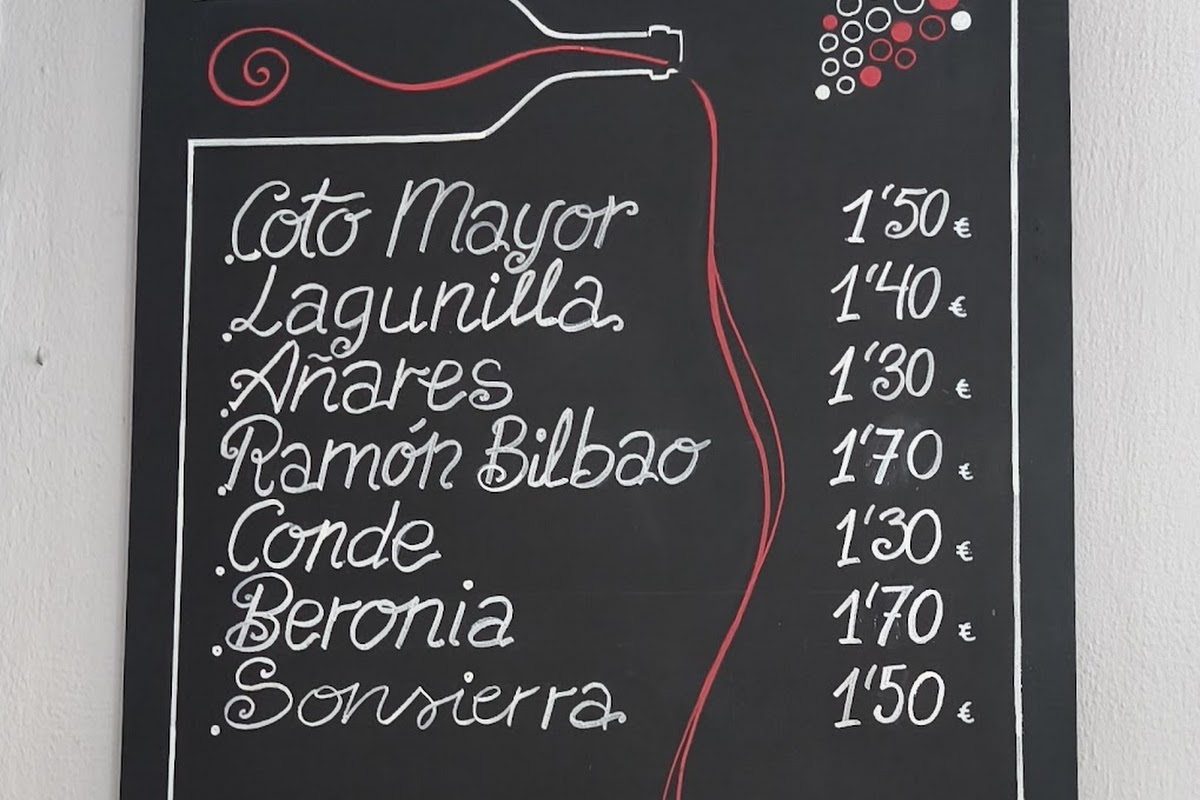 .Coto Mayor 1'50 €
.Lagunilla 1'40 €
.Añares 1'30 €
.Ramón Bilbao 1'70 €
.Conde 1'30 €
.Beronia 1'70 €
.Sonsierra 1'50 €